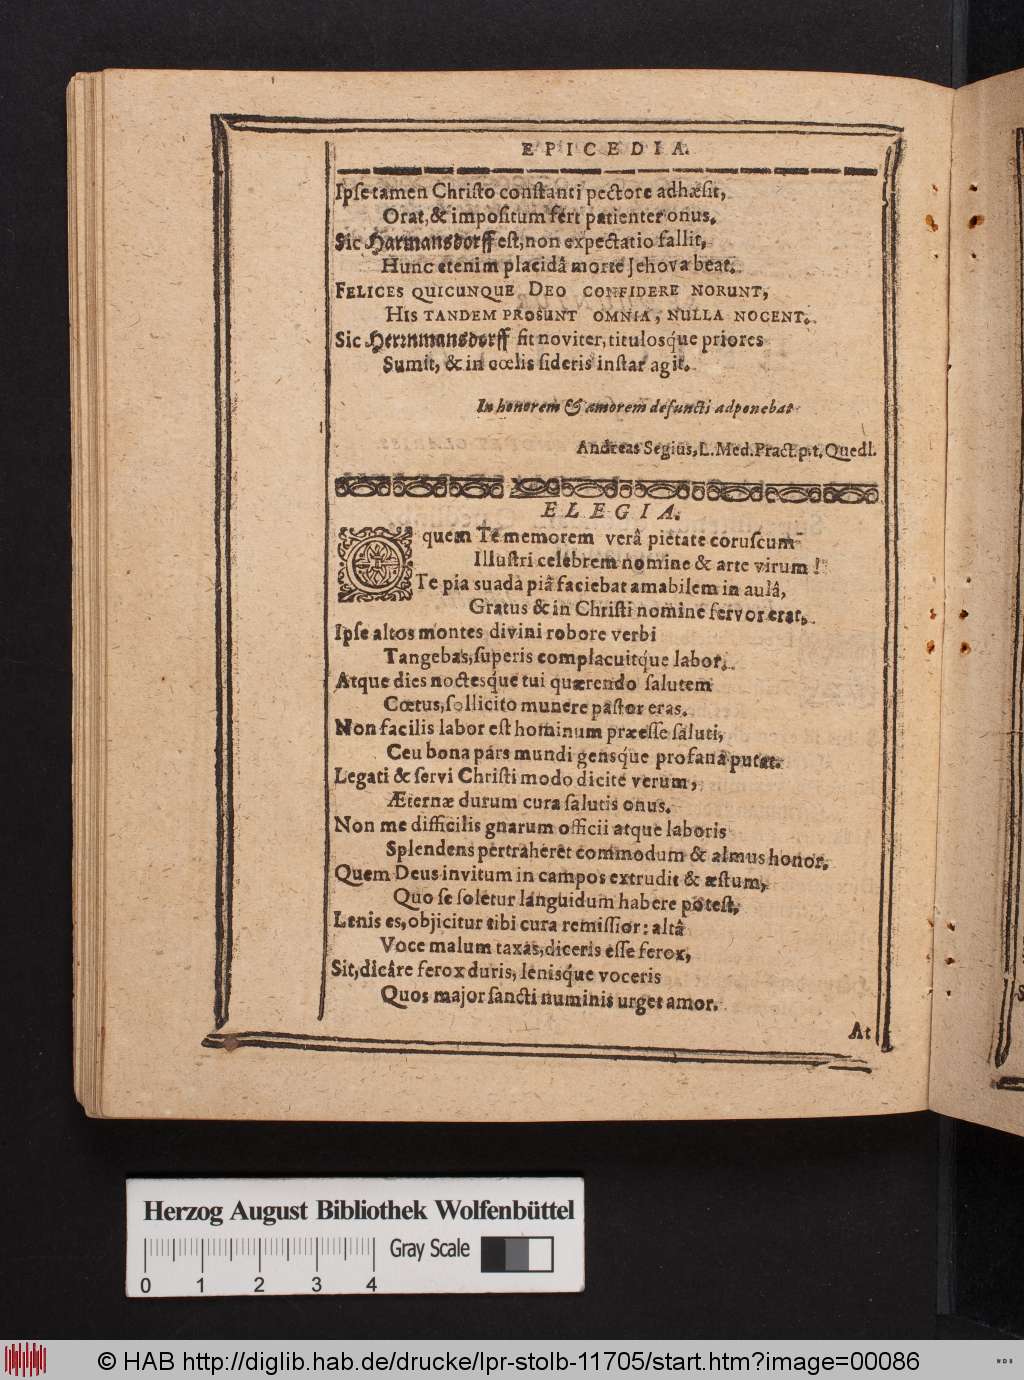 EPICEDIA.
Ipse tamen Christo constanti pectore adhæsit,
Orat, & impositum fert patienter onus.
Sic Harmansdorff est, non expectatio fallit,
Hunc etenim placidâ morte Jehova beat.
FELICES QUICUNQUE DEO CONFIDERE NORUNT,
HIS TANDEM PROSUNT OMNIA, NULLA NOCENT.
Sic Herrnmansdorff fit noviter, titulosq́ue priores
Sumit, & in cœlis sideris instar agit.
In honorem & amorem defuncti adponebat
Andreas Segius, L. Med. Pract. p. t. Quedl.
ELEGIA.
O quem Te memorem verâ pietate coruscum
Illustri celebrem nomine & arte virum!
Te pia suada piâ faciebat amabilem in aulâ,
Gratus & in Christi nomine fervor erat.
Ipse altos montes divini robore verbi
Tangebas, superis complacuitq́ue labor.
Atque dies noctesq́ue tui quærendo salutem
Cœtus, sollicito munere pastor eras.
Non facilis labor est hominum præesse saluti,
Ceu bona pars mundi gensq́ue profana putat.
Legati & servi Christi modo dicite verum,
Æternæ durum cura salutis onus.
Non me difficilis gnarum officii atque laboris
Splendens pertraheret commodum & almus honor.
Quem Deus invitum in campos extrudit & æstum,
Quo se soletur languidum habere potest,
Lenis es, objicitur tibi cura remissior: altâ
Voce malum taxas, diceris esse ferox,
Sit, dicâre ferox duris, lenisq́ue voceris
Quos major sancti numinis urget amor.
At
Herzog August Bibliothek Wolfenbüttel
0 1 2 3 4
Gray Scale
© HAB http://diglib.hab.de/drucke/lpr-stolb-11705/start.htm?image=00086